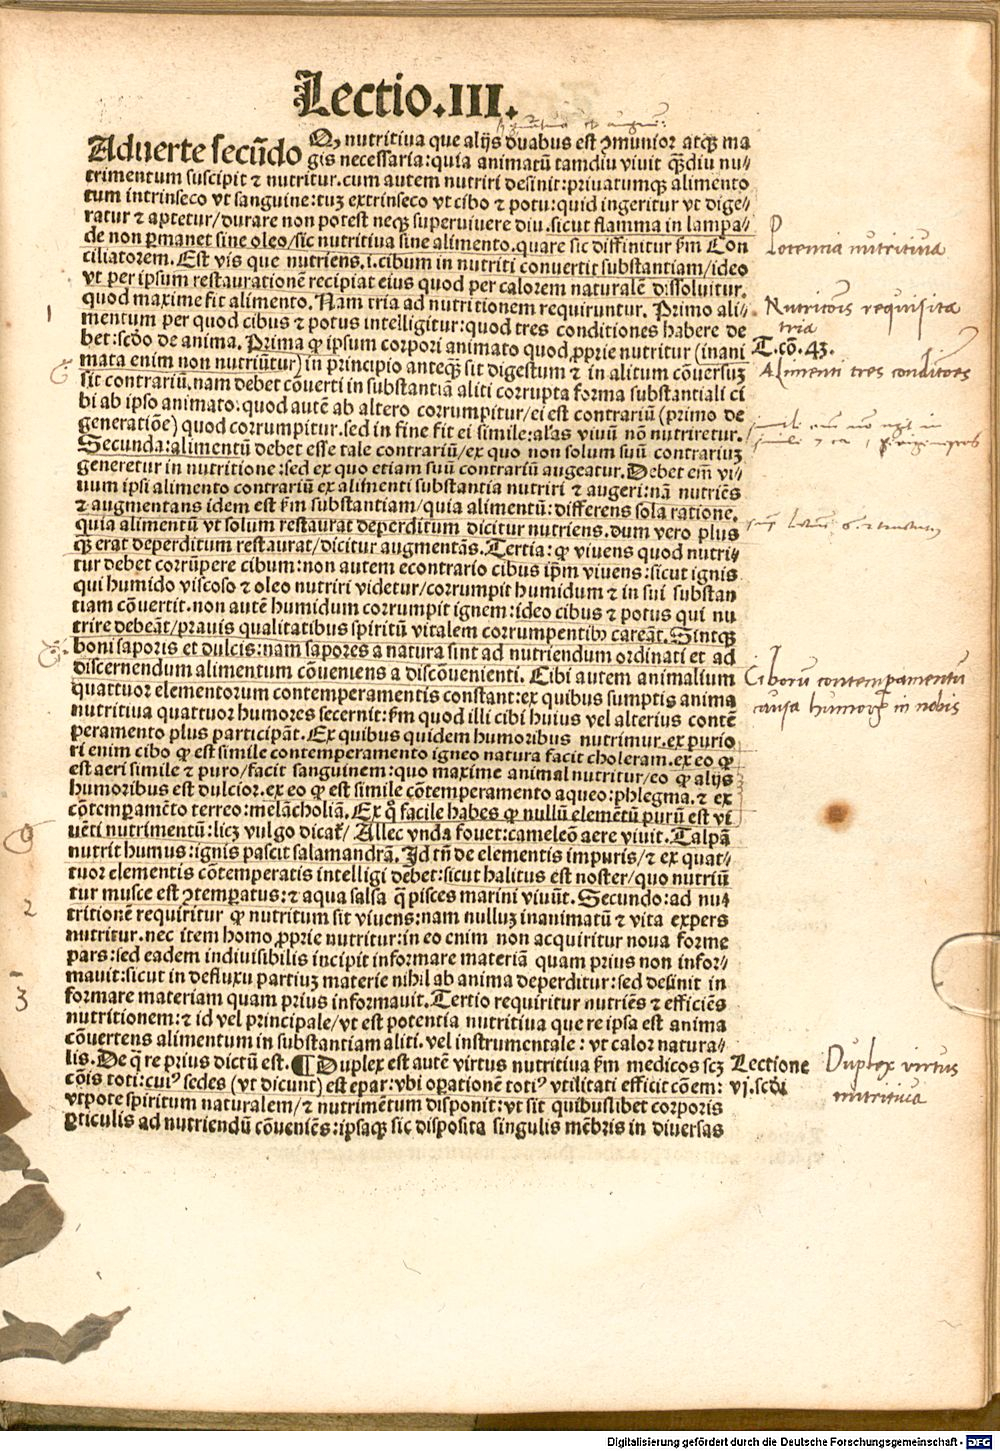 Lectio.III.
Aduerte secūdo Ꝙ nutritiua que alijs duabus est ꝯmunior atqꝫ ma
gis necessaria:quia animatū tamdiu viuit qꝫdiu nu⸗
trimentum suscipit ⁊ nutritur.cum autem nutriri desinit:priuatumqꝫ alimento
tum intrinseco vt sanguine:tuꝫ extrinseco vt cibo ⁊ potu:quid ingeritur vt dige⸗
ratur ⁊ aptetur/durare non potest neqꝫ superuiuere diu.sicut flamma in lampa⸗
de non ꝑmanet sine oleo/sic nutritiua sine alimento.quare sic diffinitur ẜm Con
ciliatorem.Est vis que nutriens.i.cibum in nutriti conuertit substantiam/ideo
vt per ipsum restaurationēt recipiat eius quod per calorem naturalē dissoluitur.
quod maxime fit alimento.Nam tria ad nutritionem requiruntur. Primo ali⸗
mentum per quod cibus ⁊ potus intelligitur:quod tres conditiones habere de
bet:scd̄o de anima. Prima ꝙ ipsum corpori animato quod ꝓprie nutritur (inani
mata enim non nutriūtur) in principio anteqꝫ sit digestum ⁊ in alitum cōuersuꝫ
sit contrariū.nam debet cōuerti in substantiā aliti corrupta forma substantiali ci
bi ab ipso animato:quod autē ab altero corrumpitur/ei est contrariū (primo de
generatiōe) quod corrumpitur.sed in fine fit ei simile:al'as viuū nō nutriretur.
Secunda:alimentū debet esse tale contrariū/ex quo non solum suū contrariuꝫ
generetur in nutritione:sed ex quo etiam suū contrariū augeatur.Debet em̄ vi⸗
uum ipsi alimento contrariū ex alimenti substantia nutriri ⁊ augeri:nā nutriēs
⁊ augmentans idem est ẜm substantiam/quia alimentū:differens sola ratione.
quia alimentū vt solum restaurat deperditum dicitur nutriens.dum vero plus
qꝫ erat deperditum restaurat/dicitur augmentās.Tertia:ꝙ viuens quod nutri⸗
tur debet corrūpere cibum:non autem econtrario cibus ip̄m viuens:sicut ignis
qui humido viscoso ⁊ oleo nutriri videtur/corrumpit humidum ⁊ in sui substan
tiam cōuertit.non autē humidum corrumpit ignem:ideo cibus ⁊ potus qui nu
trire debeāt/prauis qualitatibus spiritū vitalem corrumpentibꝰ careāt.Sintqꝫ
boni saporis et dulcis:nam sapores a natura sint ad nutriendum ordinati et ad
discernendum alimentum cōueniens a discōuenienti. Cibi autem animalium
quattuor elementorum contemperamentis constant:ex quibus sumptis anima
nutritiua quattuor humores secernit:ẜm quod illi cibi huius vel alterius contē
peramento plus participāt.Ex quibus quidem humoribus nutrimur.ex purio
ri enim cibo ꝙ est simile contemperamento igneo natura facit choleram.ex eo ꝙ
est aeri simile ⁊ puro/facit sanguinem:quo maxime animal nutritur/eo ꝙ alijs
humoribus est dulcior.ex eo ꝙ est simile cōtemperamento aqueo:phlegma.⁊ ex
cōtemꝑamēto terreo:melācholiā.Ex q̊ facile habes ꝙ nullū elemētū purū est vi
uēti nutrimentū:licꝫ vulgo dicat̄/ Allec vnda fouet:cameleō aere viuit.Talpā
nutrit humus:ignis pascit salamandrā.Id tn̄ de elementis impuris/⁊ ex quat⸗
tuor elementis cōtemperatis intelligi debet:sicut halitus est noster/quo nutriū
tur musce est ꝯtemꝑatus:⁊ aqua salsa q̄ pisces marini viuūt. Secundo:ad nu⸗
tritionē requiritur ꝙ nutritum sit viuens:nam nulluꝫ inanimatū ⁊ vita expers
nutritur.nec item homo ꝓprie nutritur:in eo enim non acquiritur noua forme
pars:sed eadem indiuisibilis incipit informare materiā quam prius non infor⸗
mauit:sicut in defluxu partiuꝫ materie nihil ab anima deperditur:sed desinit in
formare materiam quam prius informauit.Tertio requiritur nutriēs ⁊ efficiēs
nutritionem:⁊ id vel principale/vt est potentia nutritiua que re ipsa est anima
cōuertens alimentum in substantiam aliti.vel instrumentale:vt calor natura⸗
lis.De q̄ re prius dictū est.¶Duplex est autē virtus nutritiua ẜm medicos scꝫ
cōis toti:cuiꝰ sedes (vt dicunt) est epar:vbi oꝑationem totiꝰ vtilitati efficit cōem:
vtpote spiritum naturalem/⁊ nutrimētum disponit:vt sit quibuslibet corporis
ꝑticulis ad nutriendū cōueniēs:ipsaqꝫ sic disposita singulis mēbris in diuersas
Potencia nutritiua
Nutritiōis requisita
tria
T.cō.43.
Alimenti tres conditiōes
Ciborū contemperamentū
causa humorꝝ in nobis
Lectione
vj.scd̄i
Duplex virtus
nutritiua
1
2
3
Digitalisierung gefördert durch die Deutsche Forschungsgemeinschaft - DFG